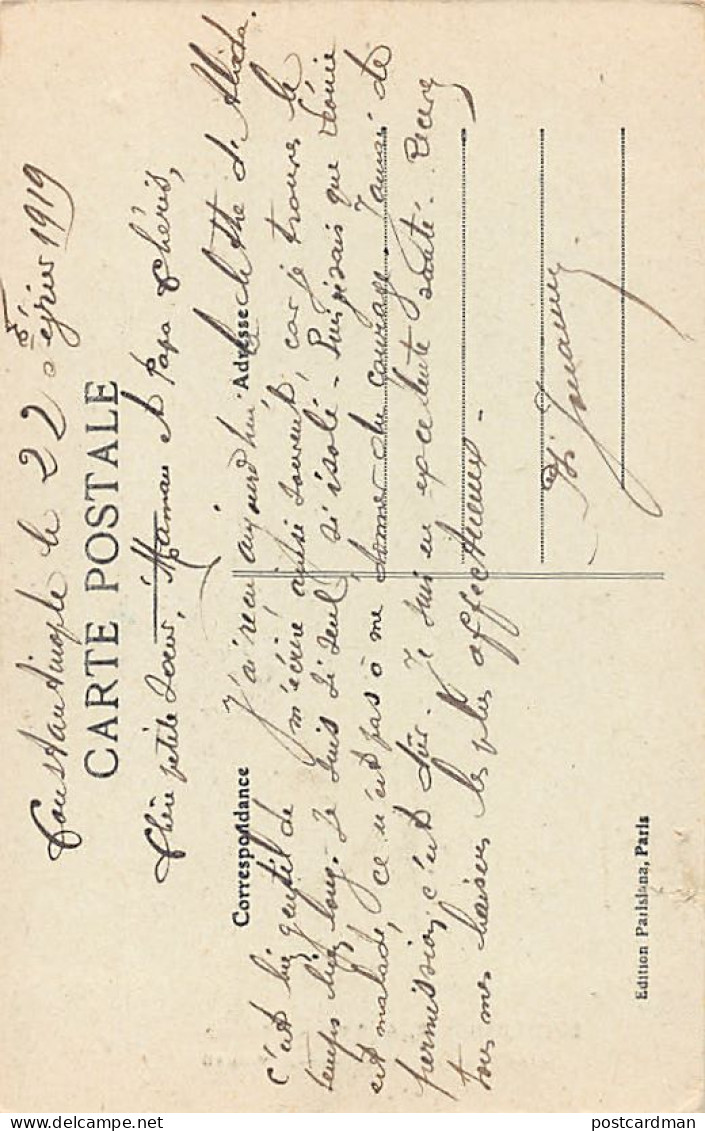 Constantinople le 22 Février 1919
CARTE POSTALE
Chère petite soeur, Maman et Papa chéris,
Correspondance
Adresse
J'ai reçu aujourd'hui la lettre d'
c'est bien gentil de m'écrire aussi souvent, car je trouve le
temps bien long. Je suis si seul, si isolé - Puis je sais que Léonie
est malade, ce n'est pas à me donner du courage. Jamais de
permission, c'est dûr. Je suis en excellente santé. Recevez
tous mes baisers les plus affectueux -
Edition Parisiana, Paris
postcardman